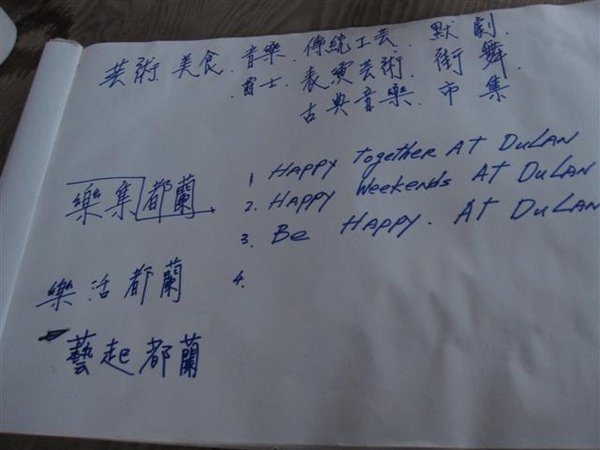 芸術. 美食. 音樂. 傳統工芸. 默劇.
爵士. 表演芸術. 街舞
古典音樂. 市集
樂集都蘭
1 HAPPY Together AT DuLAN
2. HAPPY Weekends AT DuLAN
3. Be HAPPY. AT DuLAN
4.
樂活都蘭
藝起都蘭